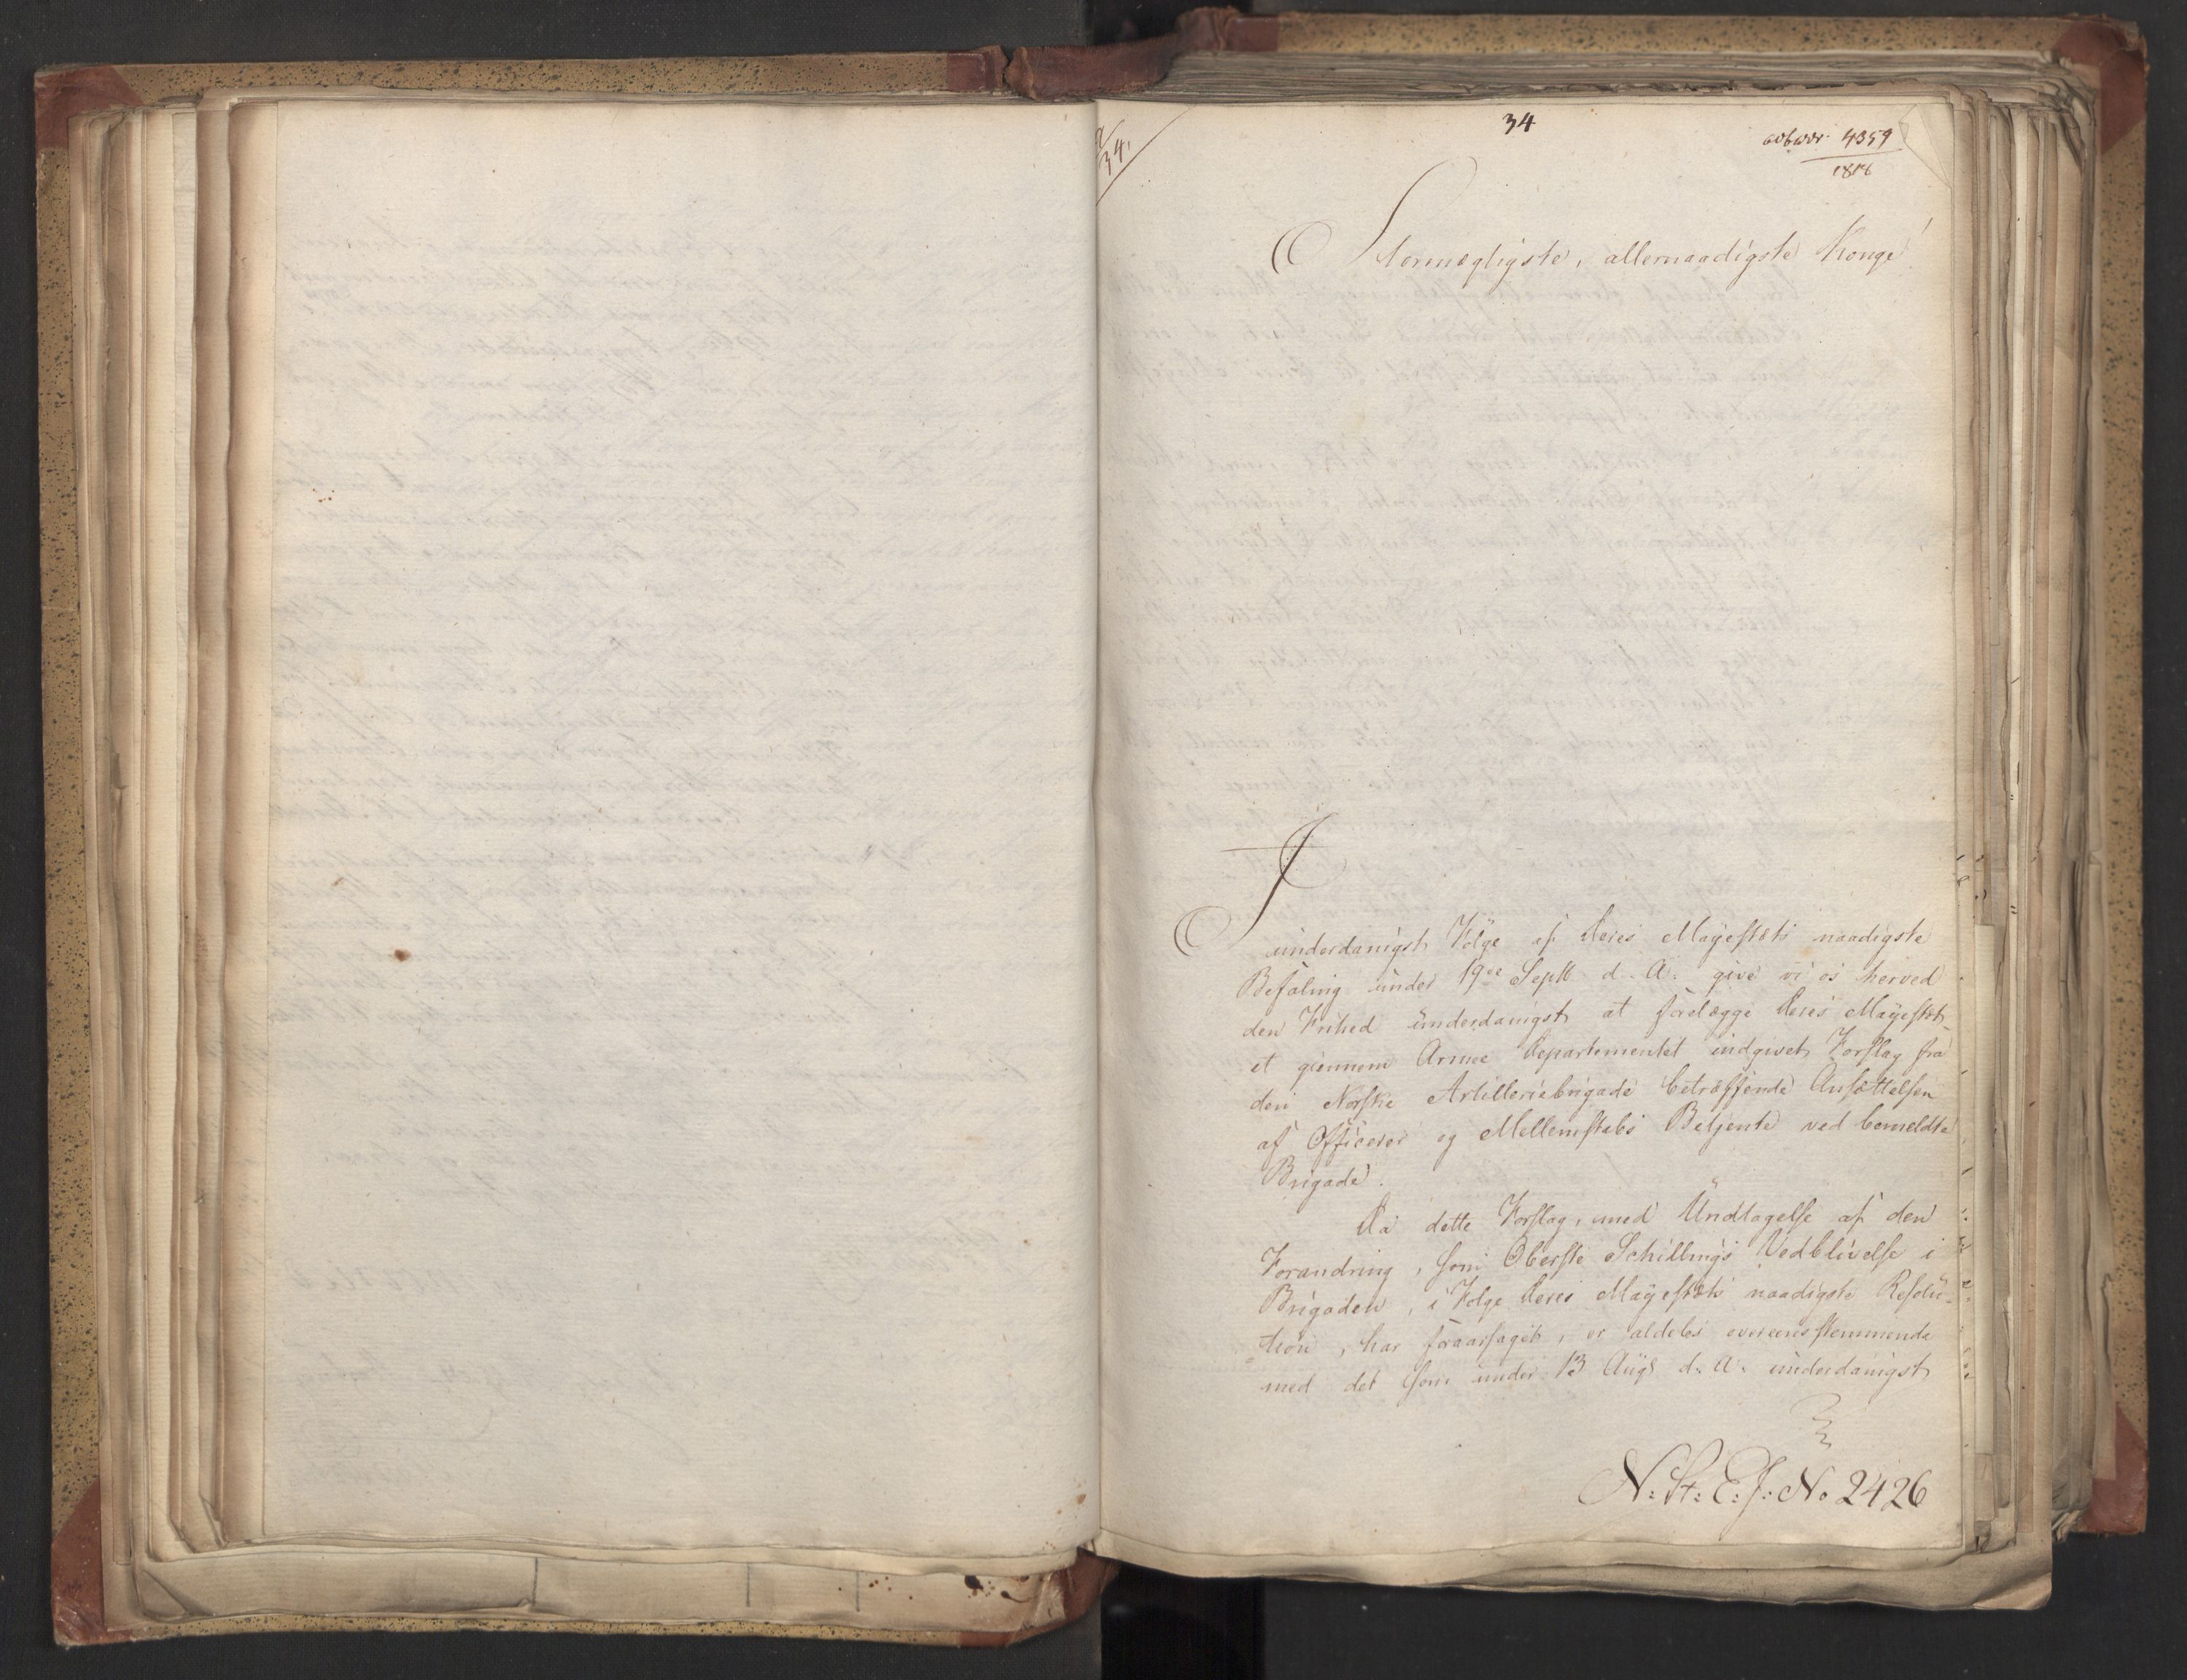 34
34.
4359
1818
Stormægtigste, allernaadigste Konge!
I
underdanigst Følge af Deres Mayestæts naadigste
Befaling under 19de Septb d. A. give vi os herved
den Frihed underdanigst at forelægge Deres Mayestæt
et giennem Armee Departementet indgivet Forslag fra
den Norske Artilleriebrigade betræffende Ansættelsen
af Officerer og Mellemstabs Betjente ved bemeldte
Brigade.
Da dette Forslag, med Undtagelse af den
Forandring, som Oberste Schillings Vedblivelse i
Brigaden, i Følge Deres Mayestæts naadigste Resolu-
tion, har foraarsaget, er aldeles overeensstemmende
med det som under 13 Augs d. A. underdanigst
N: St: E: J: No 2426